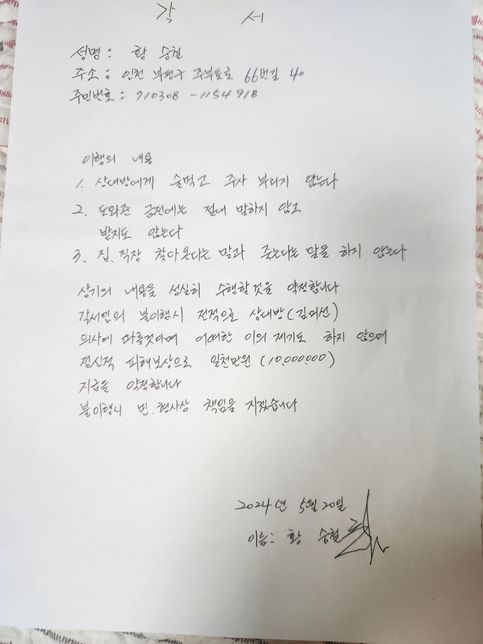 각 서
성명 : 황 승철
주소 : 인천 부평구 주부토로 66번길 40
주민번호 : 710308 - 1154918
이행의 내용
1. 상대방에게 술먹고 주사 부리지 않는다
2. 도와준 금전에는 절대 말하지 않고
받지도 않는다
3. 집.직장 찾아온다는 말과 죽는다는 말을 하지 않는다
상기의 내용을 성실히 수행할것을 약정합니다
각서인의 불이행시 전적으로 상대방 (김미선)
의사에 따를것이며 어떠한 이의 제기도 하지 않으며
정신적 피해보상으로 일천만원 (10,000,000)
지급을 약정합니다
불이행시 민.형사상 책임을 지겠습니다
2024년 5월 20일
이름: 황 승철